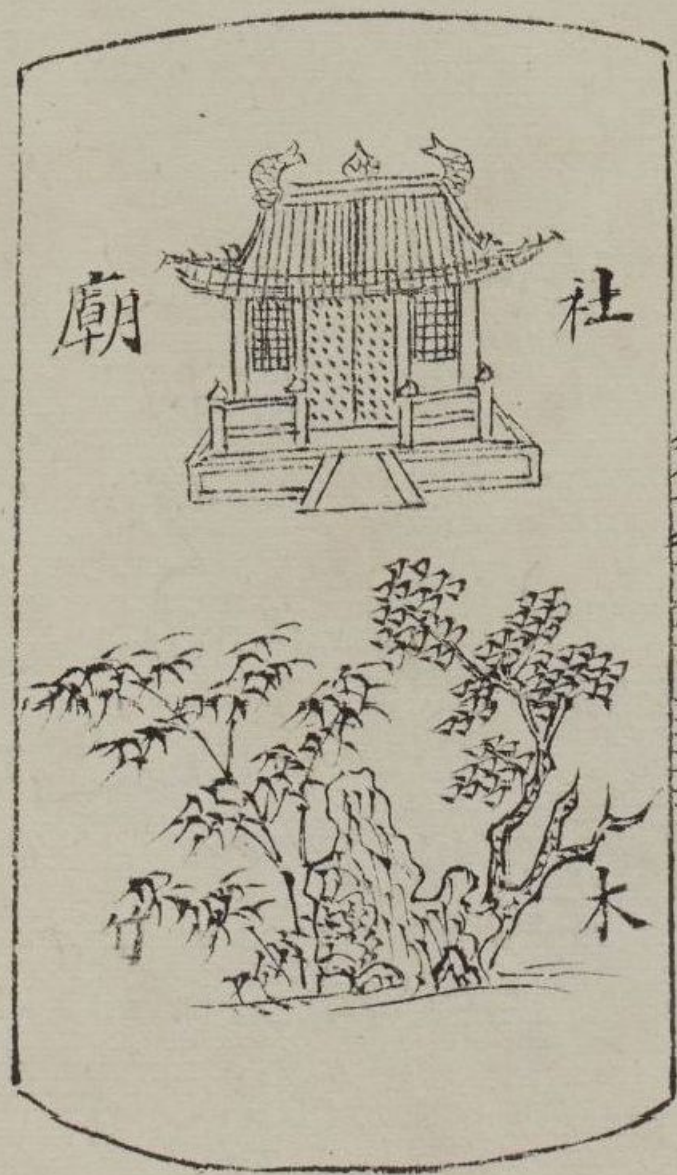 社廟
木竹